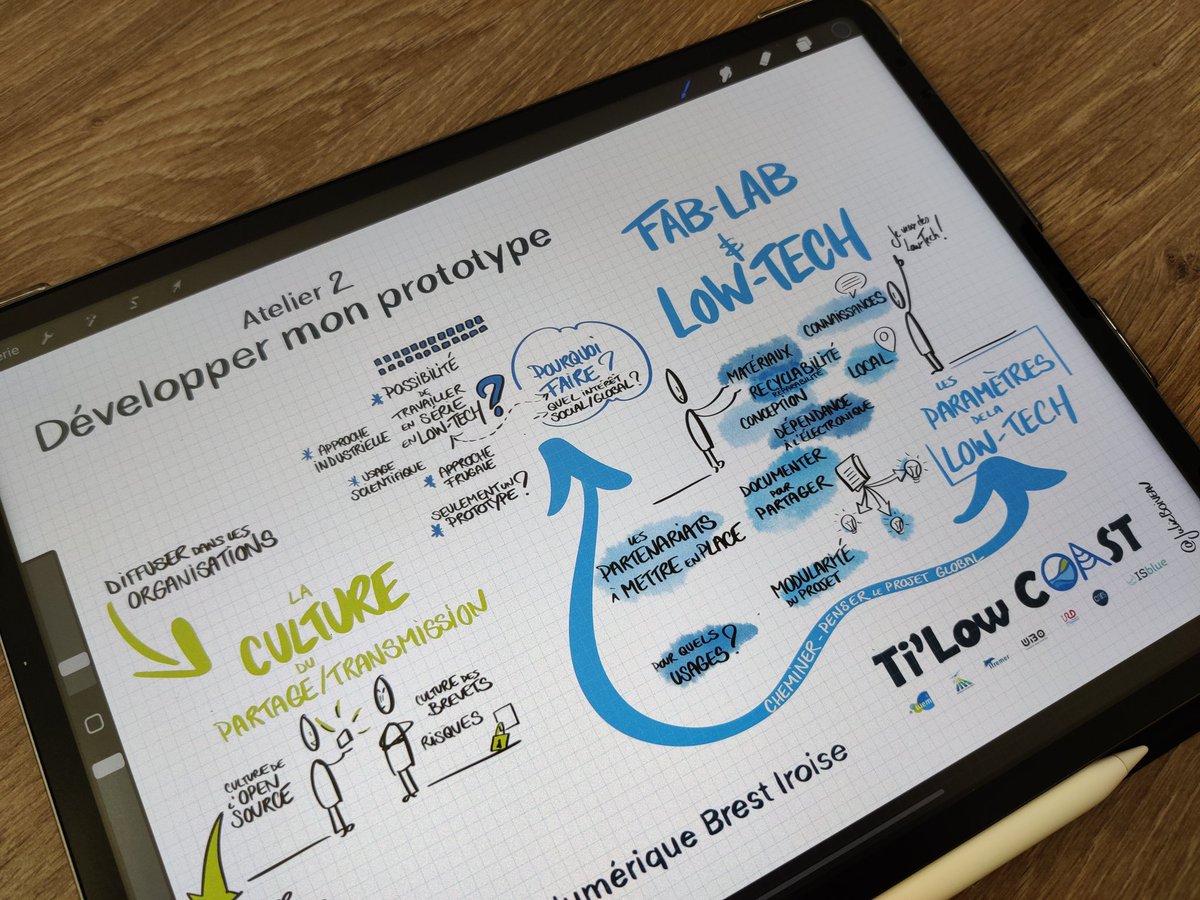 Atelier 2
Développer mon prototype
FAB-LAB
&
LOW-TECH
Je veux des
LowTech!
* POSSIBILITÉ
DE
TRAVAILLER
EN SÉRIE
EN LOW-TECH?
* APPROCHE
INDUSTRIELLE
* USAGE
SCIENTIFIQUE
* APPROCHE
FRUGALE
SEULEMENT UN
* PROTOTYPE?
POURQUOI
FAIRE?
QUEL INTÉRÊT
SOCIAL/GLOBAL?
CONNAISSANCES
MATÉRIAUX
RECYCLABILITÉ
RÉPARABILITÉ
LOCAL
CONCEPTION
DÉPENDANCE
À L'ÉLECTRONIQUE
DOCUMENTER
POUR
PARTAGER
LES
PARAMÈTRES
DE LA
LOW-TECH
LES
PARTENARIATS
À METTRE EN PLACE
MODULARITÉ
DU PROJET
POUR QUELS
USAGES?
CHEMINER - PENSER LE PROJET GLOBAL
DIFFUSER DANS LES
ORGANISATIONS
LA
CULTURE
DU
PARTAGE/TRANSMISSION
CULTURE DES
BREVETS
RISQUES
CULTURE DE
L'OPEN
SOURCE
Ti'Low COAST
ifremer
UBO
IRD
ISblue
umérique Brest Iroise